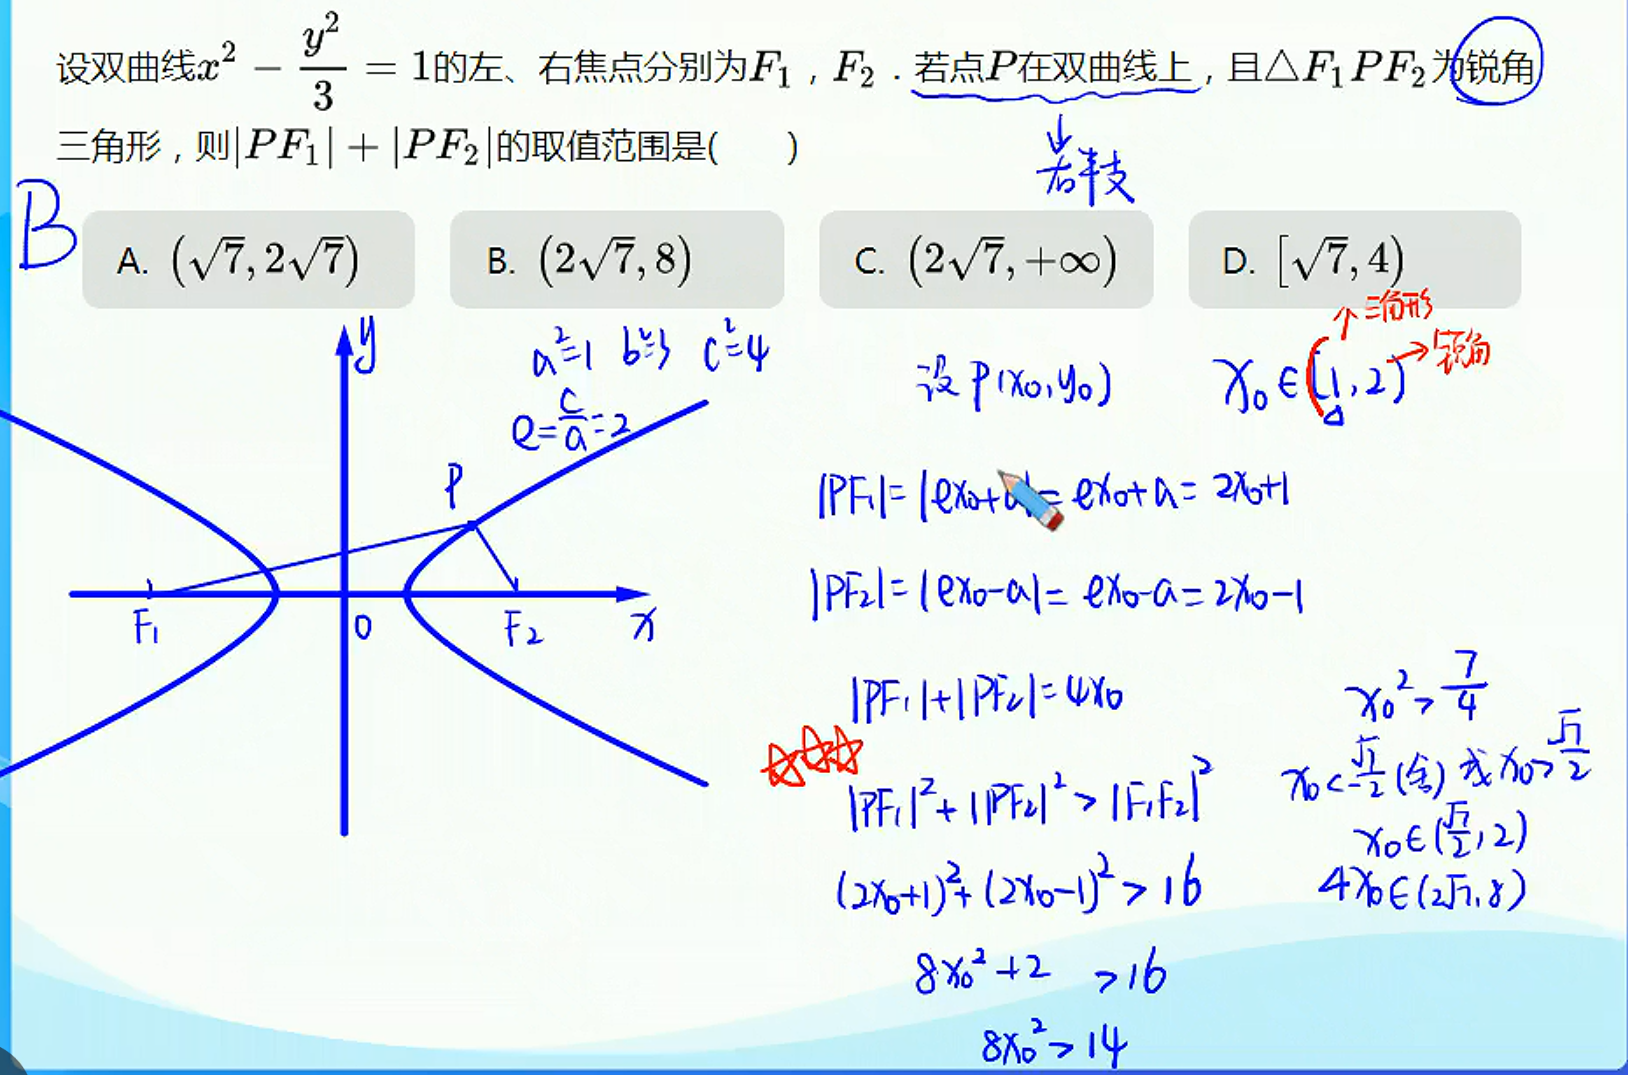 设双曲线x² − y²/3 = 1的左、右焦点分别为F₁，F₂．若点P在双曲线上，且△F₁PF₂为锐角
三角形，则|PF₁| + |PF₂|的取值范围是(　　)
右半支
B
A. (√7, 2√7)
B. (2√7, 8)
C. (2√7, +∞)
D. [√7, 4)
y
a²=1 b²=3 c²=4
e=c/a=2
P
F₁
O
F₂
x
设P(x₀,y₀)
x₀∈(1,2)
三角形
锐角
|PF₁|=|ex₀+a|=ex₀+a=2x₀+1
|PF₂|=|ex₀-a|=ex₀-a=2x₀-1
|PF₁|+|PF₂|=4x₀
|PF₁|²+|PF₂|²>|F₁F₂|²
(2x₀+1)²+(2x₀-1)²>16
8x₀²+2 >16
8x₀²>14
x₀²>7/4
x₀<-√7/2(舍)或x₀>√7/2
x₀∈(√7/2,2)
4x₀∈(2√7,8)